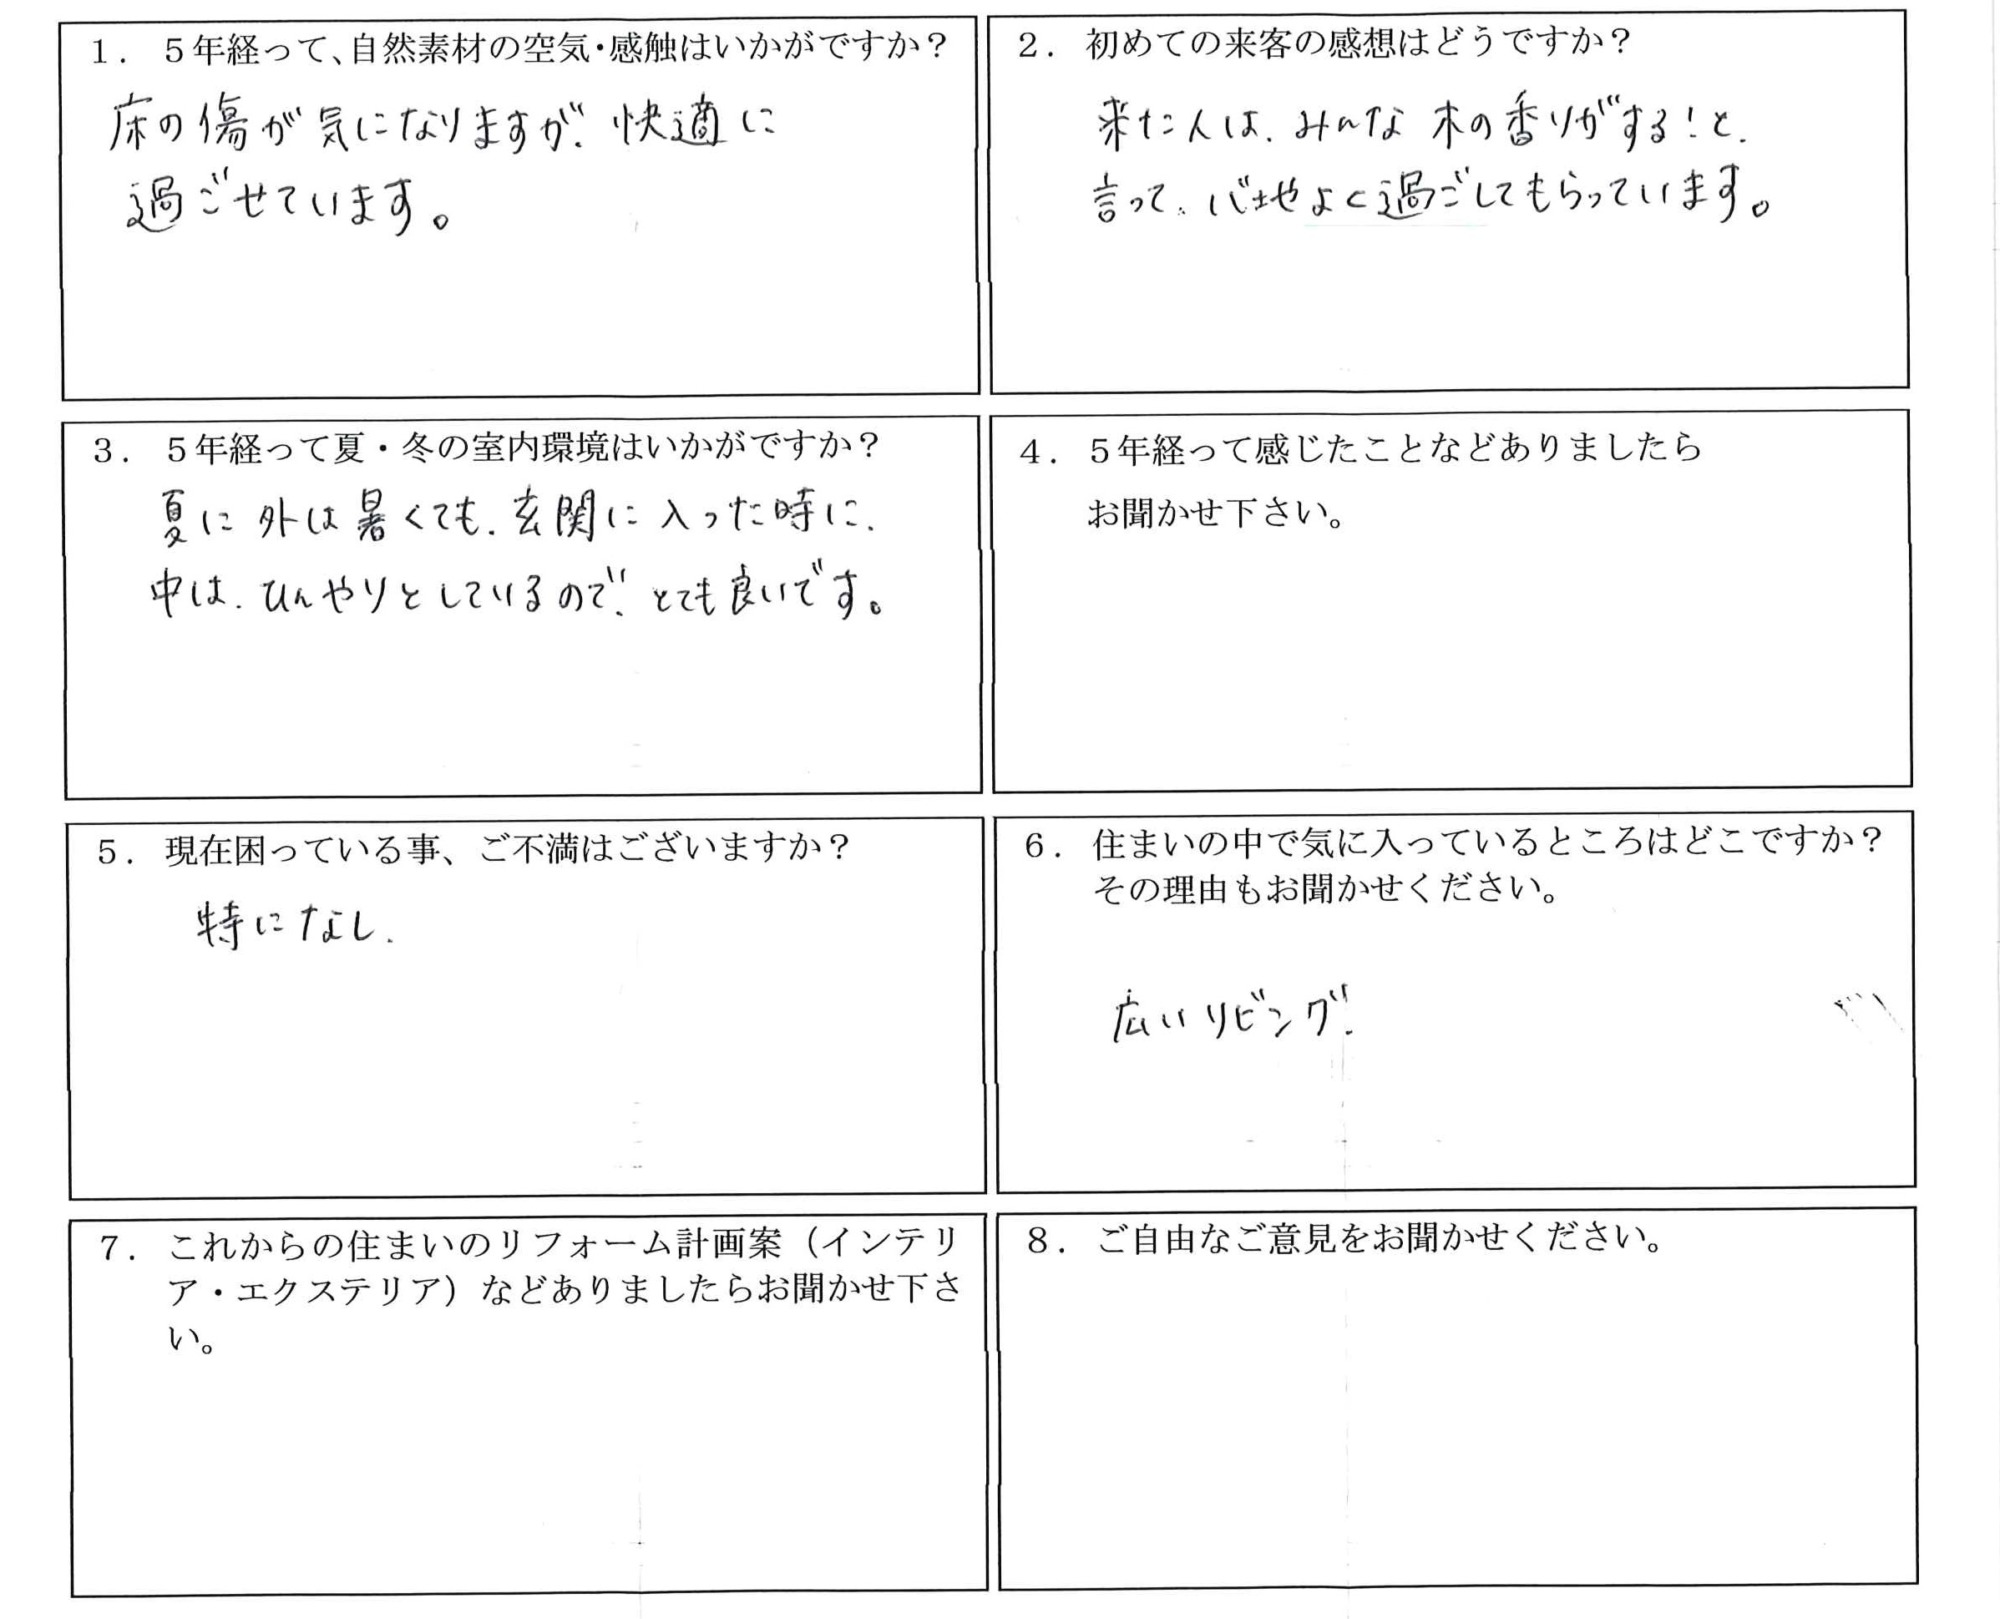 １． ５年経って、自然素材の空気・感触はいかがですか？
床の傷が気になりますが、快適に
過ごせています。
２． 初めての来客の感想はどうですか？
来た人は、みんな木の香りがする！と、
言って、心地よく過ごしてもらっています。
３． ５年経って夏・冬の室内環境はいかがですか？
夏に外は暑くても、玄関に入った時に、
中は、ひんやりとしているので、とても良いです。
４． ５年経って感じたことなどありましたら
お聞かせ下さい。
５． 現在困っている事、ご不満はございますか？
特になし.
６． 住まいの中で気に入っているところはどこですか？
その理由もお聞かせください。
広いリビング.
７． これからの住まいのリフォーム計画案（インテリ
ア・エクステリア）などありましたらお聞かせ下さ
い。
８． ご自由なご意見をお聞かせください。